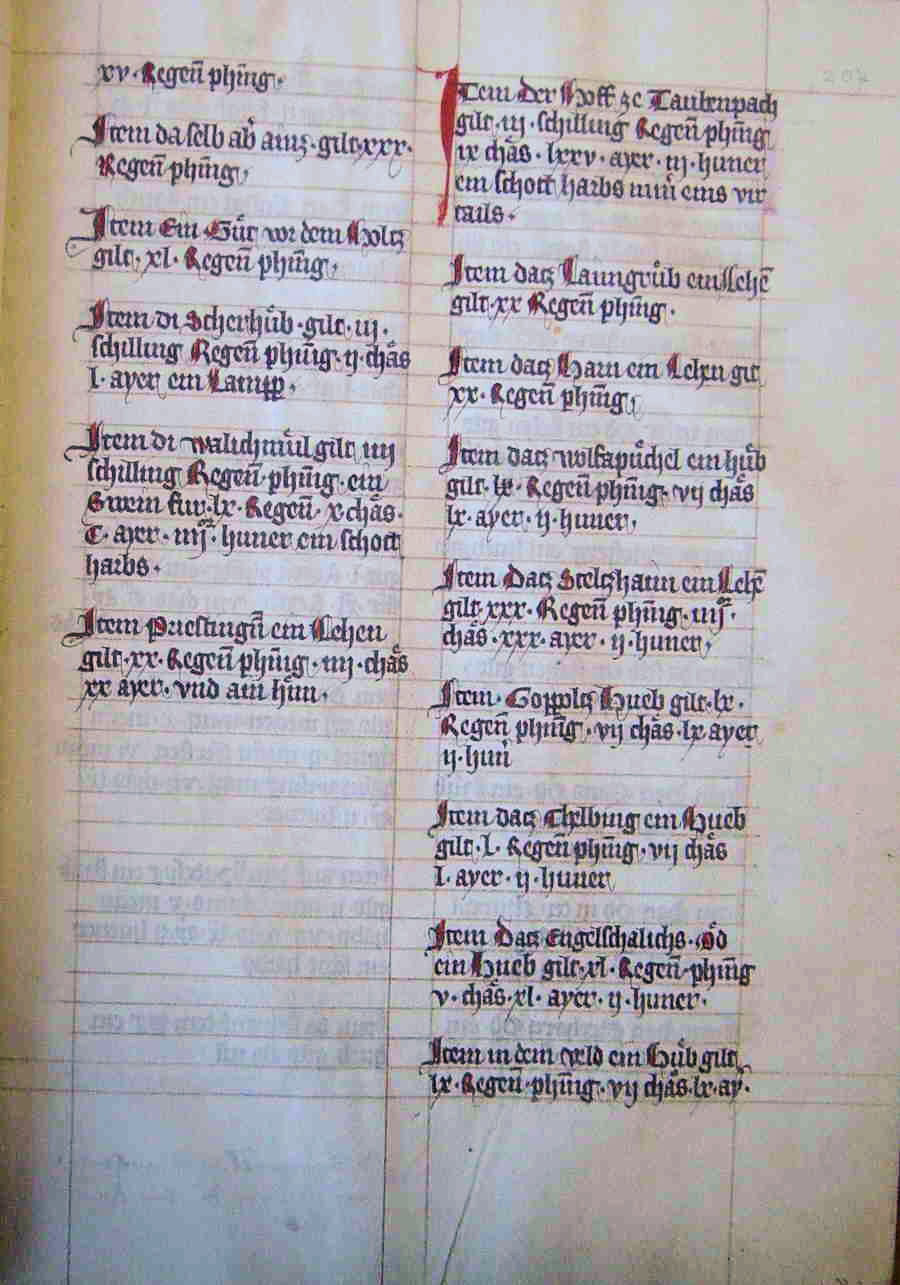 xv · Regeñ phñig ·
Item daselb ab̊ ainz · gilt · xxx ·
Regeñ phñig ,
Item Ein Gůt vor dem Holtz
gilt · xl · Regeñ phñig ,
Item di Scherhůb · gilt · iij ·
schilling Regeñ phñig · ij · chäs
l · ayer ein Lampp ,
Item di walichmůl gilt iiij
schilling Regeñ · phñig · ein
Swein fur · lx · Regeñ · x · chäs ·
C · ayer · iiij · huner ein schott
harbs ·
Item Priestingñ ein Lehen
gilt · xx · Regeñ phñig · iiij · chäs
xx ayer · vnd ain hůn ·
207
Item der Hoff ze Taubenpach
gilt · iij · schilling Regeñ phñig
ix chäs · lxxv · ayer · iij · huner
ein schott harbs min̉ eins vir
tails ·
Item datz Laungrůb ein Lehē
gilt · xx Regeñ phñig ·
Item datz Ham ein Lehen gilt
xx · Regeñ phñig ,
Item datz wolfapůchel ein hůb
gilt · lx · Regeñ phñig · vij chäs
lx · ayer · ij · huner ,
Item Datz Steltzhaim ein Lehē
gilt · xxx · Regeñ phñig · iiij ·
chäs · xxx · ayer · ij · huner ,
Item · Goppoltz Hueb gilt · lx ·
Regeñ phñig · vij chäs · lx ayer
ij · hun̉
Item datz Thelbing ein Hueb
gilt · l · Regen phñig · vij chäs
l · ayer · ij · huner
Item Datz Engelschalichs · Öd
ein Hueb gilt · xl · Regeñ · phñig
v · chäs · xl · ayer · ij · huner ·
Item in dem veld ein Hůb gilt
lx · Regeñ · phñig · vij chäs · lx · ay ·